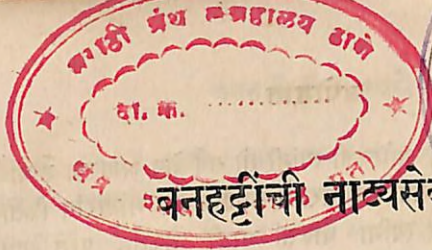 मराठी ग्रंथ संग्रहालय ठाणे
दा. क्र. ..............
बनहट्टींची नाट्यसे